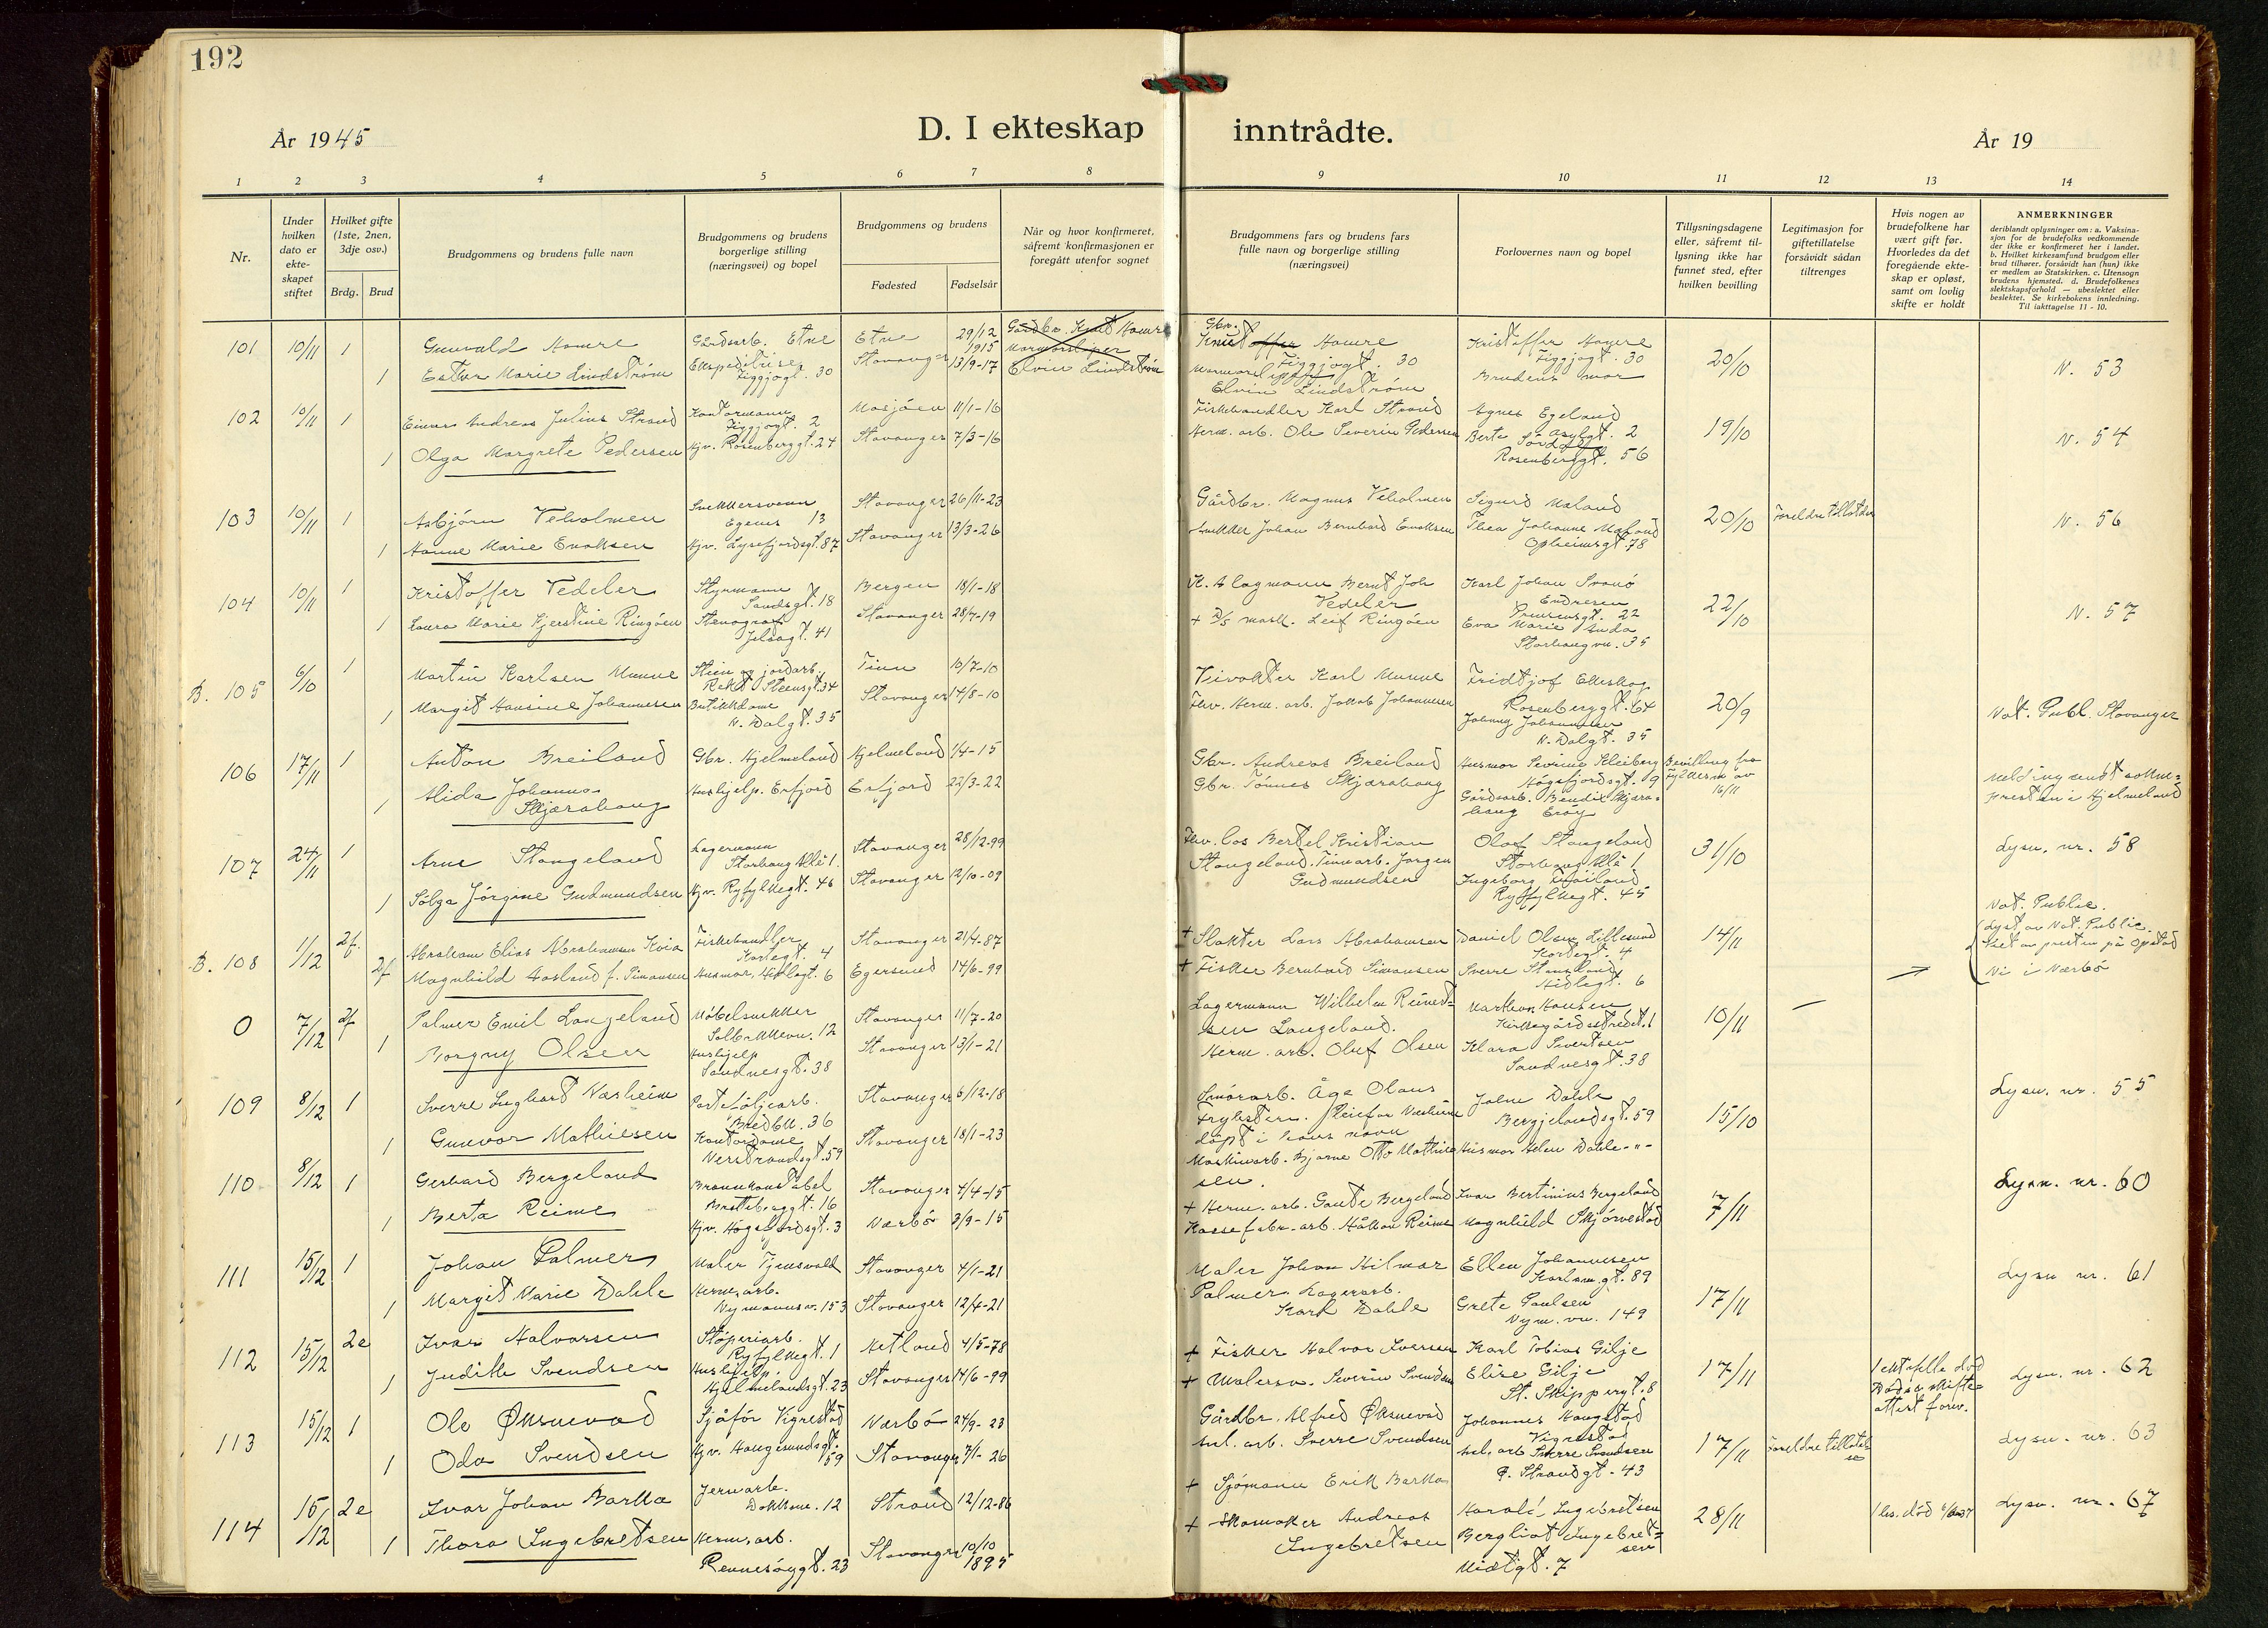 192
År 1945
D. I ekteskap inntrådte.
År 19
1 2 3 4 5 6 7 8 9 10 11 12 13 14
Nr.
Under hvilken dato er ekteskapet stiftet
Hvilket gifte (1ste, 2nen, 3dje osv.)
Brdg. Brud
Brudgommens og brudens fulle navn
Brudgommens og brudens borgerlige stilling (næringsvei) og bopel
Brudgommens og brudens
Fødested Fødselsår
Når og hvor konfirmeret, såfremt konfirmasjonen er foregått utenfor sognet
Brudgommens fars og brudens fars fulle navn og borgerlige stilling (næringsvei)
Forlovernes navn og bopel
Tillysningsdagene eller, såfremt tillysning ikke har funnet sted, efter hvilken bevilling
Legitimasjon for giftetillatelse forsåvidt sådan tiltrenges
Hvis nogen av brudefolkene har vært gift før. Hvorledes da det foregående ekteskap er opløst, samt om lovlig skifte er holdt
ANMERKNINGER
deriblandt oplysninger om: a. Vaksinasjon for de brudefolks vedkommende der ikke er konfirmeret her i landet. b. Hvilket kirkesamfund brudgom eller brud tilhører, forsåvidt han (hun) ikke er medlem av Statskirken. c. Utensogn brudens hjemsted. d. Brudefolkenes slektskapsforhold — ubeslektet eller beslektet. Se kirkebokens innledning. Til iakttagelse 11 - 10.
101 10/11 1 Gunvald Hamre Gårdsarb. Etne Etne 29/12 1915 Gårdbr. Knut Hamre Gbr. Knut Hamre Kristoffer Hamre Tiggjagt. 30 20/10 N. 53
1 Esther Marie Lindstrøm Ekspeditrise Tiggjagt. 30 Stavanger 13/9-17 Marmorsliper Elvin Lindstrøm Marmorsliper Elvin Lindstrøm Brudens mor
102 10/11 1 Einar Andreas Julius Strand Kontormann Tiggjagt. 2 Mosjøen 11/1-16 Fiskehandler Karl Strand Agnes Egeland 19/10 N. 54
1 Olga Margrete Pedersen Hjv. Rosenberggt. 24 Stavanger 7/3-16 Herm. arb. Ole Severin Pedersen Berte Rosenberggt. 56
103 10/11 1 Asbjørn Veholmen Snekkersvenn Egenes 13 Stavanger 26/11-23 Gårdbr. Magnus Veholmen Sigurd Maland 20/10 Foreldretillatelse N. 56
1 Hanne Marie Enoksen Hjv. Lysefjordsgt. 87 Stavanger 13/3-26 Snekker Johan Bernhard Enoksen Thea Johanne Maland Opheimsgt. 78
104 10/11 1 Kristoffer Vedeler Styrmann Sandsgt. 18 Bergen 18/1-18 Vedeler Karl Johan Svanø Endresen 22/10 N. 57
1 Laura Marie Kjerstine Ringøen Stenograf Jelsagt. 41 Stavanger 28/7-19 + D/S mask. Leif Ringøen Eva Marie Storhaugvn. 35
B. 105 6/10 1 Martin Karlsen Munne Stein og jordarb. Stensgt. 34 Tinn 10/7-10 Veivokter Karl Munne Fridtjof Rosenberggt. 64 20/9 Not. Publ. Stavanger
1 Margit Hansine Johannesen Butikkdame N. Dalgt. 35 Stavanger 14/8-10 Fhv. Herm. arb. Jakob Johannesen Johnny Johannesen N. Dalgt. 35
106 17/11 1 Anton Breiland Gbr. Hjelmeland Hjelmeland 1/4-15 Gbr. Andreas Breiland Husmor Severine Kleiberg Høgsfjordsgt. 9 Bevilling fra Fylkesm. av 16/11 Melding sendt soknepresten i Hjelmeland
1 Alida Johanna Skjærahaug Hushjelp. Erfjord Erfjord 22/3-22 Gbr. Tønnes Skjærahaug Gårdsarb. Bendix Skjærahaug Erøy
107 24/11 1 Arne Stangeland Lagermann Storhaug Allé 1. Stavanger 28/12-99 Fhv. los Bertel Kristian Stangeland Olaf Stangeland Storhaug Allé 1 31/10 Lysn. nr. 58
1 Solga Jørgine Gudmundsen Hjv. Ryfylkegt. 46 Stavanger 12/10-09 Tinnarb. Jørgen Gudmundsen Ingeborg Ryfylkegt. 45
B. 108 1/12 2f. Abraham Elias Abrahamsen Kvia Fiskehandler 4 Stavanger 21/4-87 + Slakter Lars Abrahamsen Daniel Olsen Lillesund 4 14/11 Not. Public. (Lyst av Not. Public.
2f Magnhild Aasland f. Simonsen Husmor, gt. 6 Egersund 14/6-99 + Fisker Bernhard Simonsen Sverre Stangeland 6 presten på Opstad Ni i Nærbø
0 7/12 2f Palmer Emil Langeland Møbelsnekker Solbakkevn. 12 Stavanger 11/7-20 Lagermann Wilhelm Reinertsen Langeland. Marthon Hansen Kirkegårdsstredet. 1 10/11 —
1 Borgny Olsen Hushjelp Sandnesgt. 38 Stavanger 13/1-21 Herm. arb. Oluf Olsen Klara Sivertsen Sandnesgt. 38
109 8/12 1 Sverre Inghart Næsheim Portefoljearb. 36 Stavanger 6/12-18 Smørarb. Åge Olaus døpt i hans navn Dahle Bergjelandsgt. 59 15/10 Lysn. nr. 55
1 Gunvor Mathiesen Kontordame Verstrandsgt. 59 Stavanger 18/1-23 Maskinarb. Bjarne Otto Mathiesen. Husmor Helen Dahle -"-
110 8/12 1 Gerhard Bergeland Brannkonstabel 16 Stavanger 7/4-15 + Herm. arb. Gaute Bergeland Ivar Bertinius Bergeland 7/11 Lysn. nr. 60
1 Berta Reime Hjv. Høgsfjordsgt. 3 Nærbø 3/9-15 Kassefabr. arb. Håkon Reime Magnhild Skjørvestad
111 15/12 1 Johan Palmer Maler Tjensvold Stavanger 4/1-21 Maler Johan Hilmar Palmer Ellen Johannesen gt. 89 17/11 Lysn nr. 61
1 Margit Marie Dahle Herm. arb. Nymansv. 153 Stavanger 12/4-21 Lagerarb. Karl Dahle Grete Paulsen Nym. vn. 149
112 15/12 2e Ivar Halvorsen Støperiarb. Ryfylkegt. 1 Hetland 4/5-78 + Fisker Halvor Iversen Karl Tobias Gilje 17/11 1 ektefelle død Lysn. nr. 62
1 Judith Svendsen Hushjelp. Hjelmelandsgt. 23 Stavanger 14/6-99 + Malersv. Severin Svendsen Elise Gilje St. Skippergt. 8 skifteattest forev.
113 15/12 1 Ole Øksnevad Sjåfør Vigrestad Nærbø 24/9-23 Gårdbr. Alfred Øksnevad Johannes Haugstad Vigrestad 17/11 Foreldretillatelse Lysn. nr. 63
1 Oda Svendsen Hjv. Haugesundsgt. 59 Stavanger 7/1-26 arb. Sverre Svendsen arb Sverre Svendsen Ø. Strandgt. 43
114 15/12 2e Ivar Johan Barka Jernarb. 12 Strand 12/12-86 + Sjømann Erik Barka Harald Ingebretsen 28/11 Lysn. nr. 67
1 Thora Ingebretsen Herm. arb. Rennesøygt. 23 Stavanger 10/10 1895 + Skomaker Andreas Ingebretsen Bergliot Ingebretsen Midtgt. 7